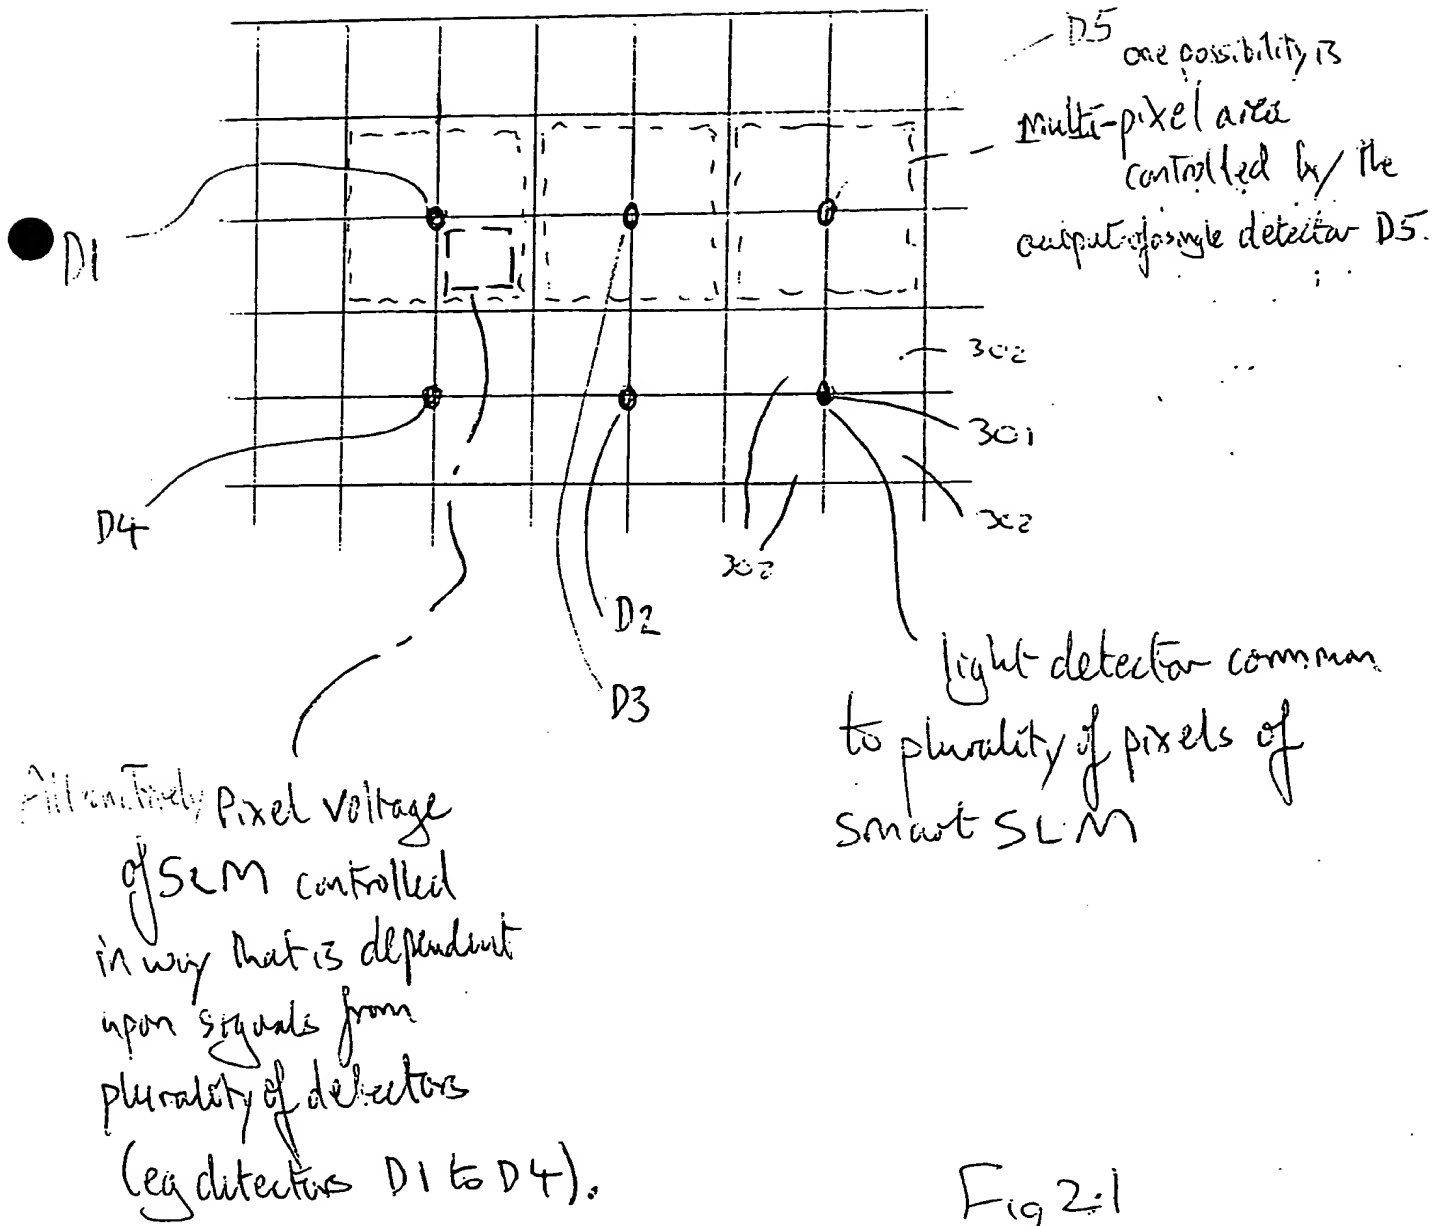 D5
one possibility is
Multi-pixel area
controlled by the
output of a single detector D5.
D1
302
301
302
D4
302
D2
D3
light detector common
to plurality of pixels of
smart SLM
Alternatively Pixel Voltage
of SLM controlled
in way that is dependent
upon signals from
plurality of detectors
(eg detectors D1 to D4).
Fig 2.1